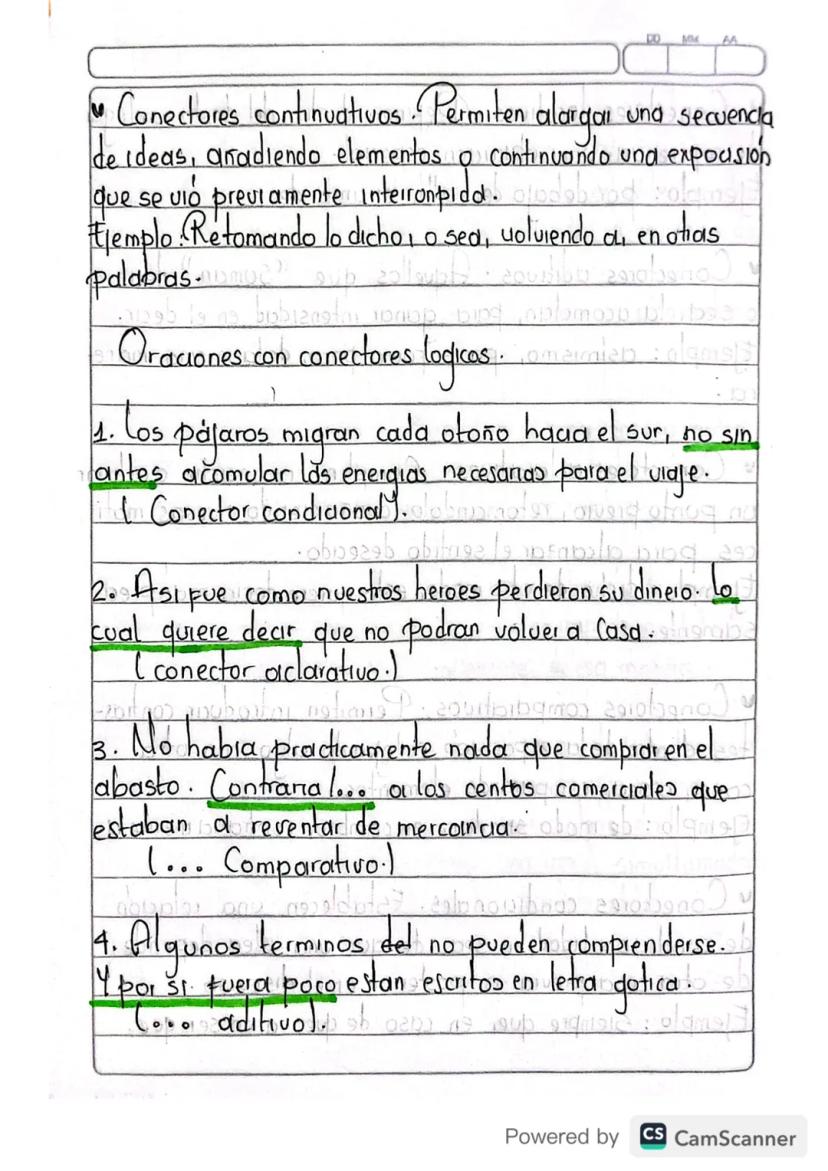 DD MM AA
Conectores continuativos: Permiten alargar una secuencia
de ideas, añadiendo elementos o continuando una expocisión
que se vió previamente interronpida.
Ejemplo: Retomando lo dicho, o sea, volviendo a, en otras
palabras.
Oraciones con conectores logicos.
1. Los pájaros migran cada otoño hacia el sur, no sin
antes acomular las energias necesarias para el viaje.
( Conector condicional ).
2. Asi fue como nuestros heroes perdieron su dinero. lo
cual quiere decir que no podran volver a casa.
( conector aclarativo.)
3. No habia practicamente nada que comprar en el
abasto. Contraria/... a los centos comerciales que
estaban a reventar de mercancia.
(... Comparativo.)
4. Algunos terminos del no pueden comprenderse.
Y por si fuera poco estan escritos en letra gotica.
(... aditivo).
Powered by CS CamScanner